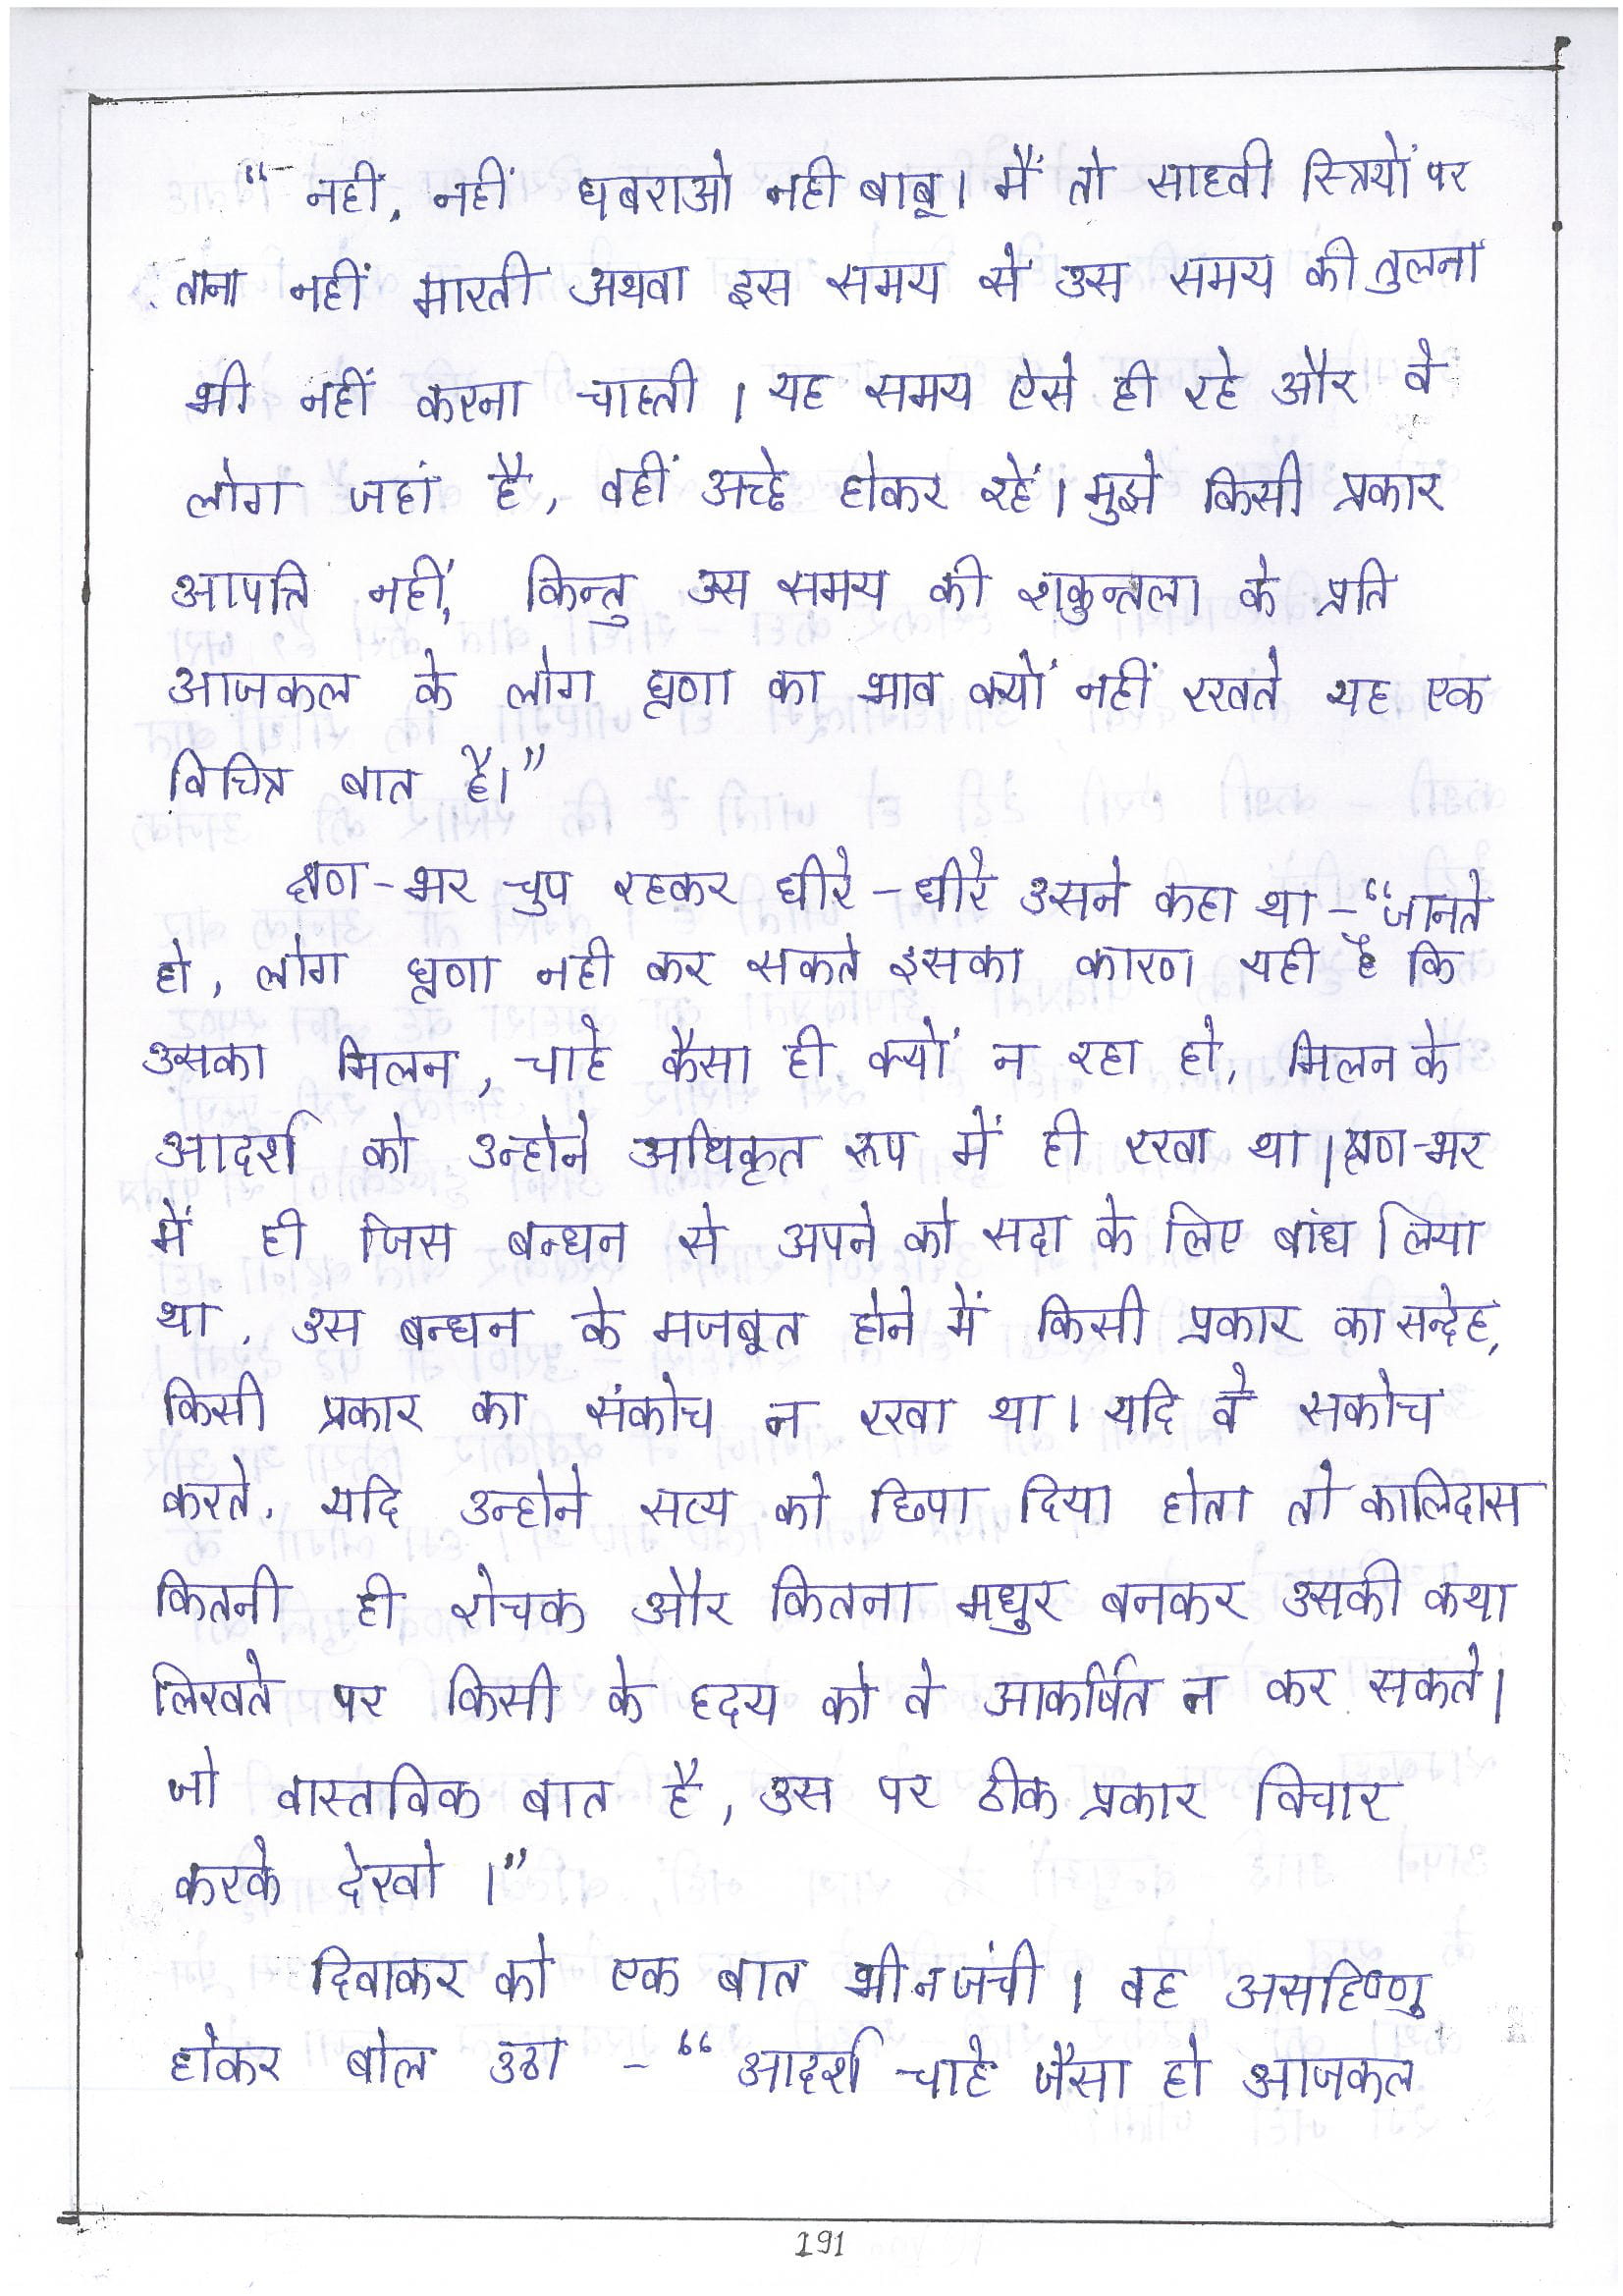 “ नहीं, नहीं घबराओ नही बाबू। मैं तो साध्वी स्त्रियों पर
ताना नहीं मारती अथवा इस समय से उस समय की तुलना
भी नहीं करना चाहती । यह समय ऐसे ही रहे और वे
लोग जहां है, वहीं अच्छे होकर रहें। मुझे किसी प्रकार
आपत्ति नहीं, किन्तु उस समय की शकुन्तला के प्रति
आजकल के लोग घृणा का भाव क्यों नहीं रखते यह एक
विचित्र बात है।”
क्षण-भर चुप रहकर धीरे-धीरे उसने कहा था-“जानते
हो, लोग घृणा नही कर सकते इसका कारण यही है कि
उसका मिलन, चाहे कैसा ही क्यों न रहा हो, मिलन के
आदर्श को उन्होने अधिकृत रूप में ही रखा था। क्षण-भर
में ही जिस बन्धन से अपने को सदा के लिए बांध लिया
था, उस बन्धन के मजबूत होने में किसी प्रकार का सन्देह,
किसी प्रकार का संकोच न रखा था। यदि वे सकोच
करते, यदि उन्होने सत्य को छिपा दिया होता तो कालिदास
कितनी ही रोचक और कितना मधुर बनकर उसकी कथा
लिखते पर किसी के हृदय को वे आकर्षित न कर सकते।
जो वास्तविक बात है, उस पर ठीक प्रकार विचार
करके देखो ।”
दिवाकर को एक बात भी न जंची । वह असहिष्णु
होकर बोल उठा - “ आदर्श चाहे जैसा हो आजकल
191